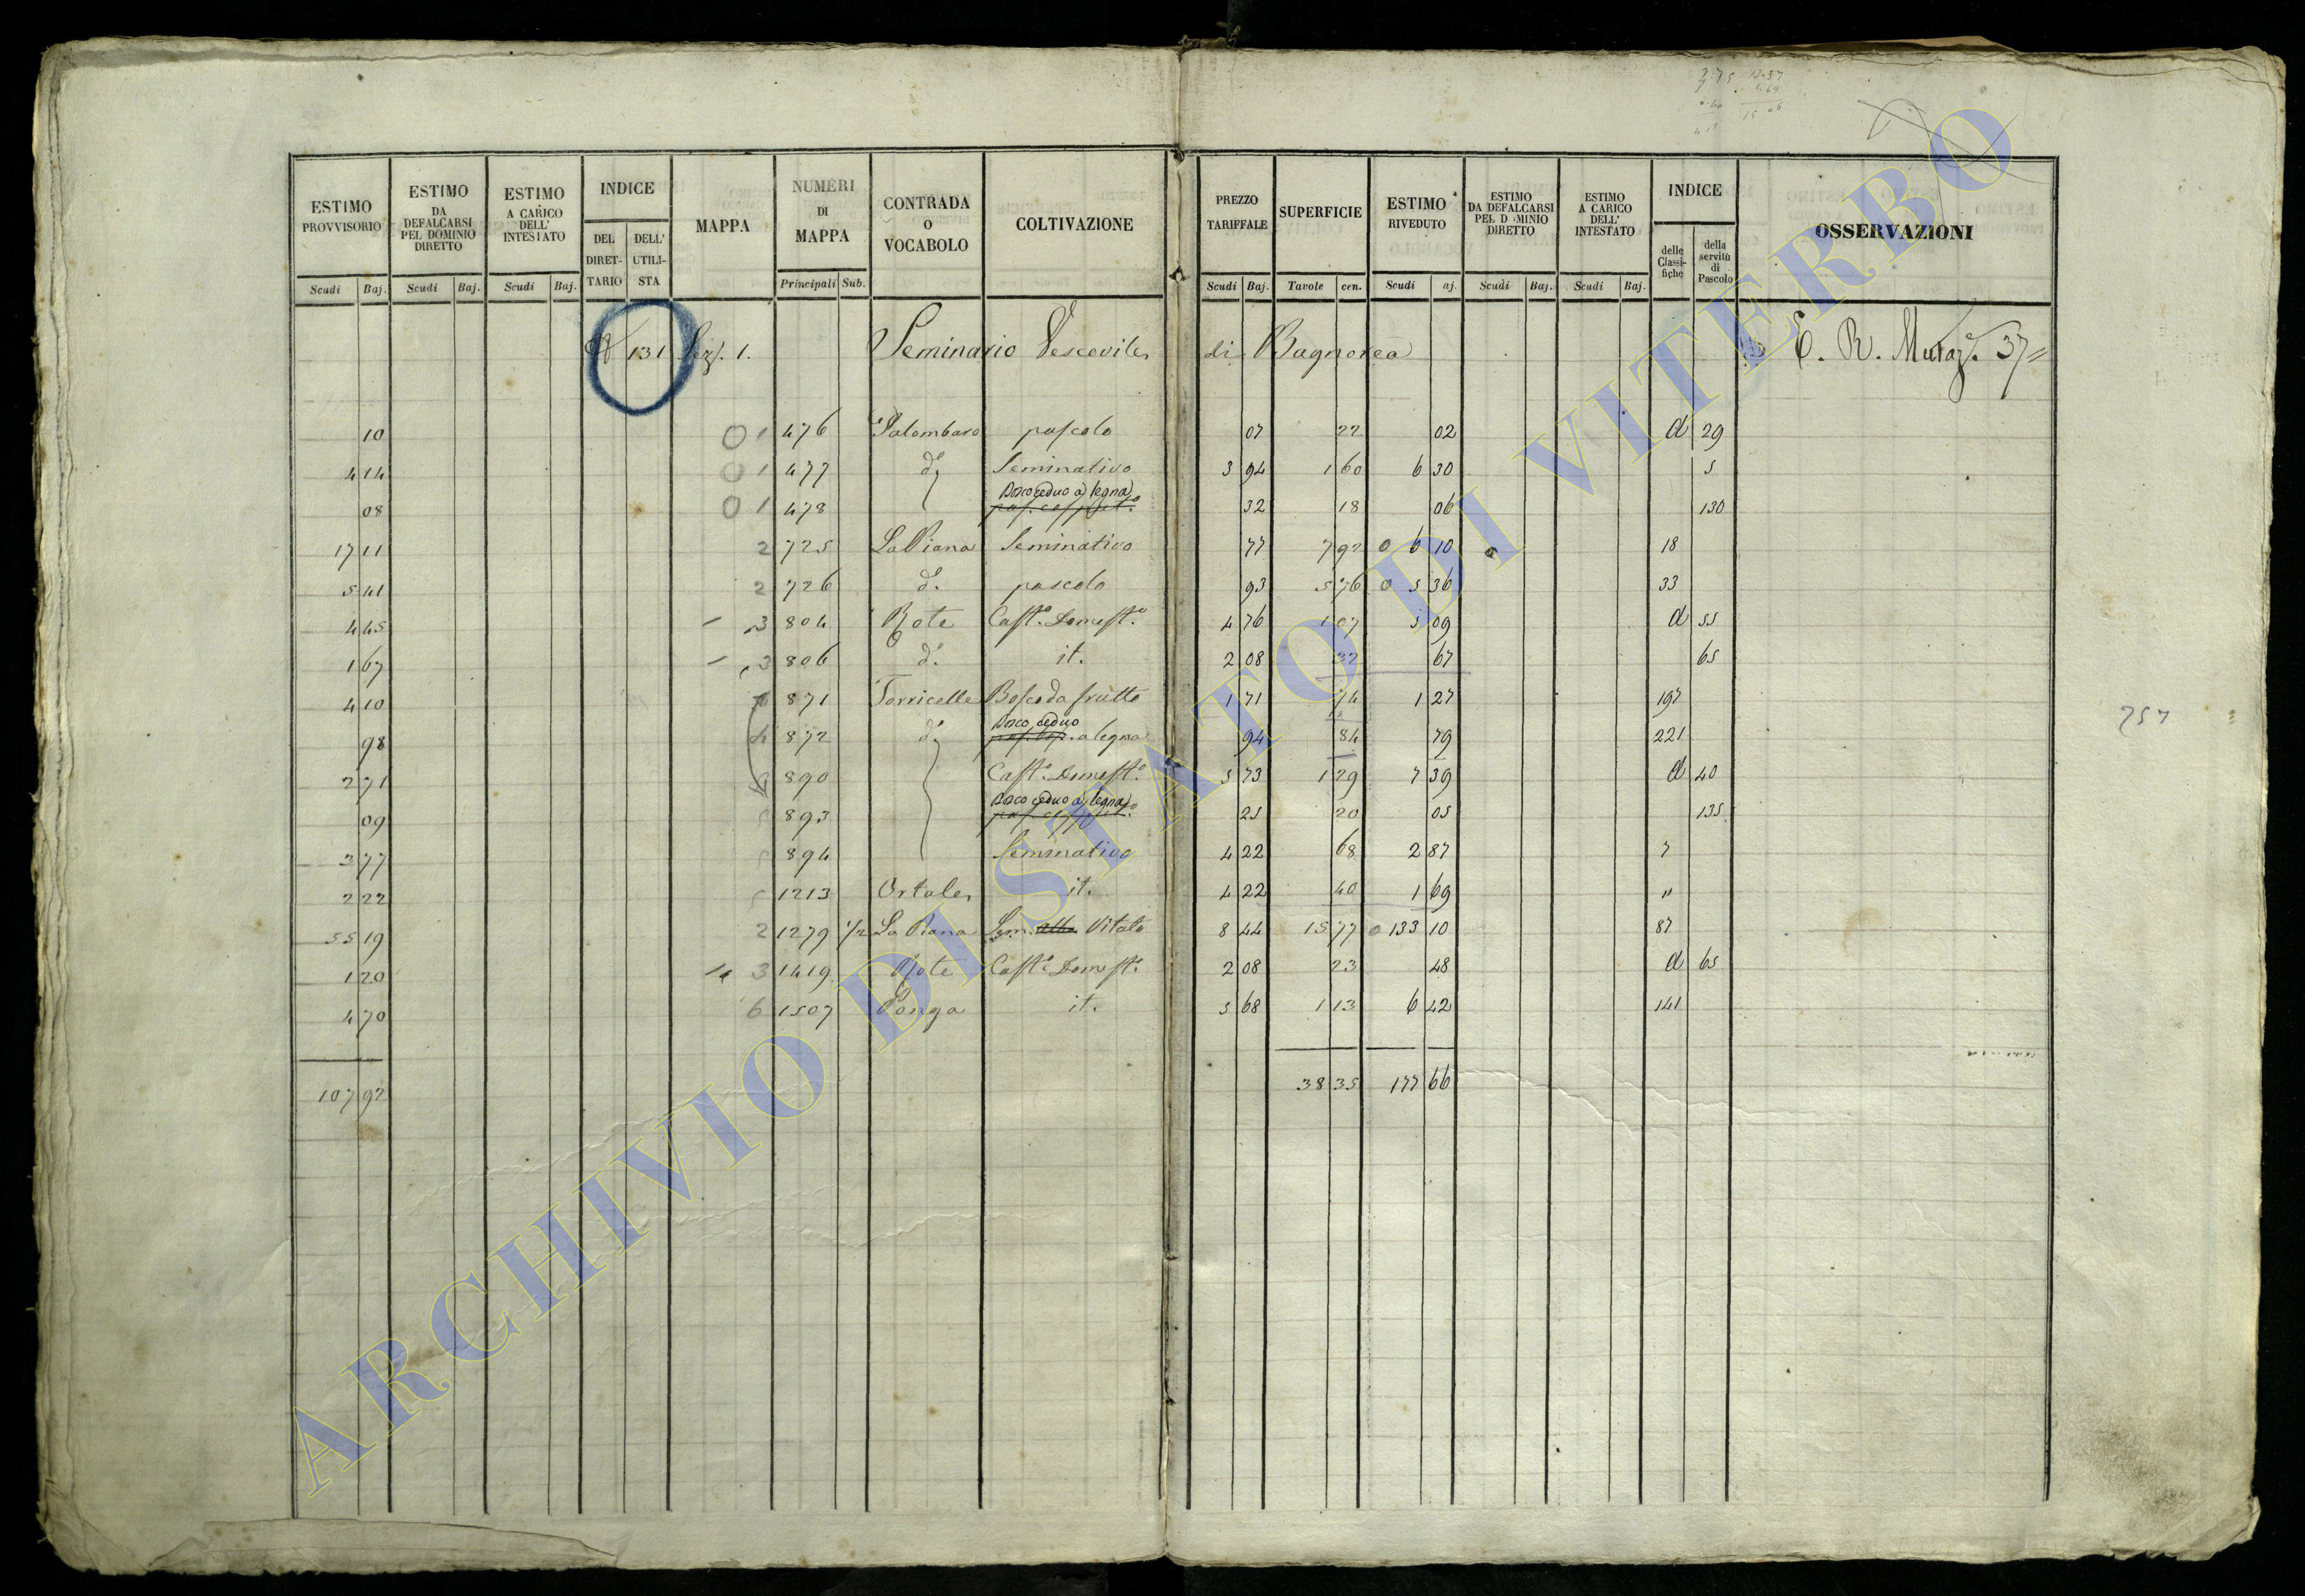 3:75 12.57
ESTIMO PROVVISORIO
ESTIMO DA DEFALCARSI PEL DOMINIO DIRETTO
ESTIMO A CARICO DELL' INTESTATO
INDICE
DEL DIRETTARIO
DELL' UTILISTA
MAPPA
NUMERI DI MAPPA
CONTRADA O VOCABOLO
COLTIVAZIONE
PREZZO TARIFFALE
SUPERFICIE
ESTIMO RIVEDUTO
ESTIMO DA DEFALCARSI PEL D MINIO DIRETTO
ESTIMO A CARICO DELL' INTESTATO
INDICE
delle Classifiche
della servitù di Pascolo
OSSERVAZIONI
Scudi Baj. Scudi Baj. Scudi Baj. Principali Sub. Scudi Baj. Tavole cen. Scudi aj. Scudi Baj. Scudi Baj.
131 Sez. 1. Seminario Vescovile di Bagnorea E. R. Muraz. 37
10 0 1 476 Palombaro pascolo 07 22 02 d 29
4 14 0 1 477 do Seminativo 3 94 1 60 6 30 5
08 0 1 478 Bosco ceduo a legna 32 18 06 130
17 11 2 725 La Piana Seminativo 77 7 92 0 6 10 18
5 41 2 726 do. pascolo 93 5 76 0 5 36 33
4 45 3 804 Rote Casto. Domesto. 4 76 1 07 5 09 d 55
1 67 3 806 do. it. 2 08 32 67 65
4 10 871 Torricelle Bosco da frutto 1 71 74 1 27 197
98 4 872 do Bosco ceduo a legna 94 84 79 221
2 71 890 Casto. Domesto. 5 73 1 29 7 39 d 40
09 5 893 Bosco ceduo a legna 25 20 05 135
2 77 5 894 Seminativo 4 22 68 2 87 7
2 22 5 1213 Ortale it. 4 22 40 1 69 "
55 19 2 1279 1/2 La Piana Sem. Vitato 8 44 15 77 0 133 10 87
1 20 3 1419 Rote Casto. Domesto. 2 08 23 48 d 65
4 70 6 1507 Ponga it. 5 68 1 13 6 42 141
107 92 38 35 177 66
757
ARCHIVIO DI STATO DI VITERBO